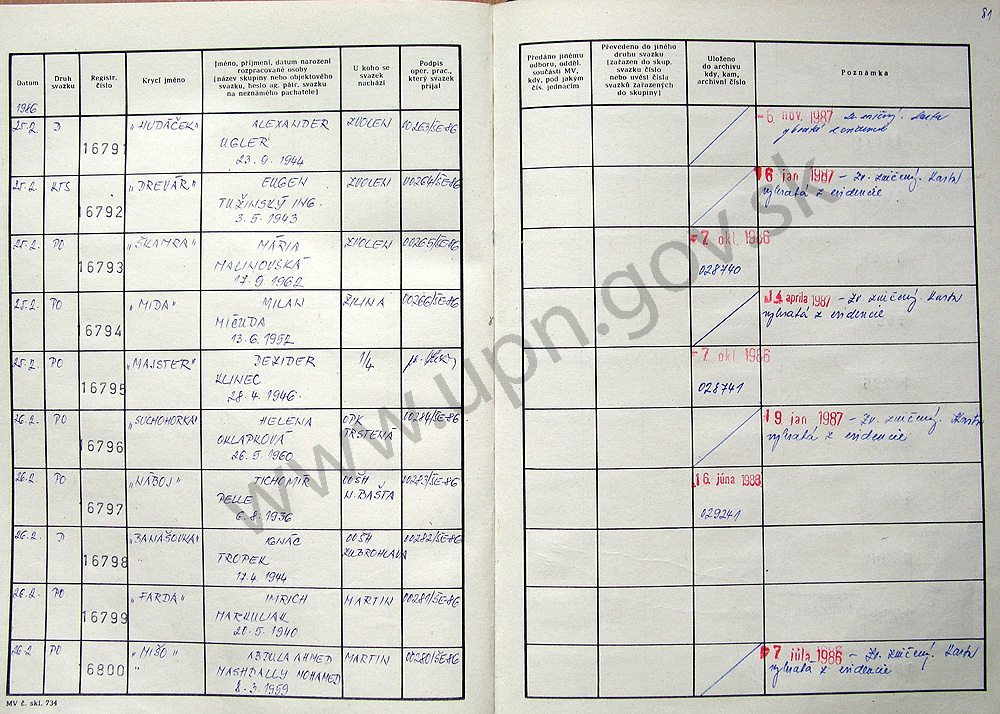 81
Datum
Druh svazku
Registr. číslo
Krycí jméno
Jméno, příjmení, datum narození
rozpracované osoby
[název skupiny nebo objektového
svazku, heslo ag. pátr. svazku
na neznámého pachatele]
U koho se
svazek
nachází
Podpis
oper. prac.,
který svazek
přijal
Předáno jinému
odboru, odděl.
součásti MV,
kdy, pod jakým
čís. jednacím
Převedeno do jiného
druhu svazku
[zařazen do skup.
svazku číslo
nebo uvést čísla
svazků zařazených
do skupiny]
Uloženo
do archivu
kdy, kam,
archivní číslo
Poznámka
1986
25.2. D 16791 "HUDÁČEK" ALEXANDER ZVOLEN 00263/ŠE-86
UGLER
23.9.1944
6. nov. 1987
25.2. 16792 "DREVÁR" EUGEN ZVOLEN 00264/ŠE-86
TUŽINSKÝ ING.
3.5.1943
6 jan 1987 - Zv. zničený. Karta
vybratá z evidencie
25.2. PO 16793 "ŠKAMRA" MÁRIA ZVOLEN 00265/ŠE-86
MALINOVSKÁ
17.9.1962
7 okt. 1986
028740
25.2. PO 16794 "MIDA" MILAN ŽILINA 00266/ŠE-86
MIČUDA
13.6.1952
14 apríla 1987 - Zv. zničený. Karta
vybratá z evidencie
25.2. PO 16795 "MAJSTER" DEZIDER 1/4
KLINEC
28.4.1946
7 okt 1986
028741
26.2. PO 16796 "SUCHOHORKA" HELENA OPK 00284/ŠE-86
OKLAPKOVÁ TRSTENA
26.5.1960
19 jan 1987 - Zv. zničený. Karta
vybratá z evidencie
26.2. PO 16797 "NÁBOJ" TICHOMIR OOŠH 00283/ŠE-86
PELLE N. BAŠTA
6.8.1936
16. júna 1988
029241
26.2. D 16798 "BANÁŠOVKA" IGNÁC OOŠH 00282/ŠE-86
TROPEK ZUBROHLAVA
17.4.1944
26.2. PO 16799 "FARDA" IMRICH MARTIN 00281/ŠE-86
MARKULIAK
20.5.1940
26.2 PO 16800 "MIŠO" ABDULA AHMED MARTIN 00280/ŠE-86
MASHDALLY MOHAMED
8.3.1959
7 júla 1986 - Zv. zničený. Karta
vybratá z evidencie
MV č. skl. 734
www.upn.gov.sk